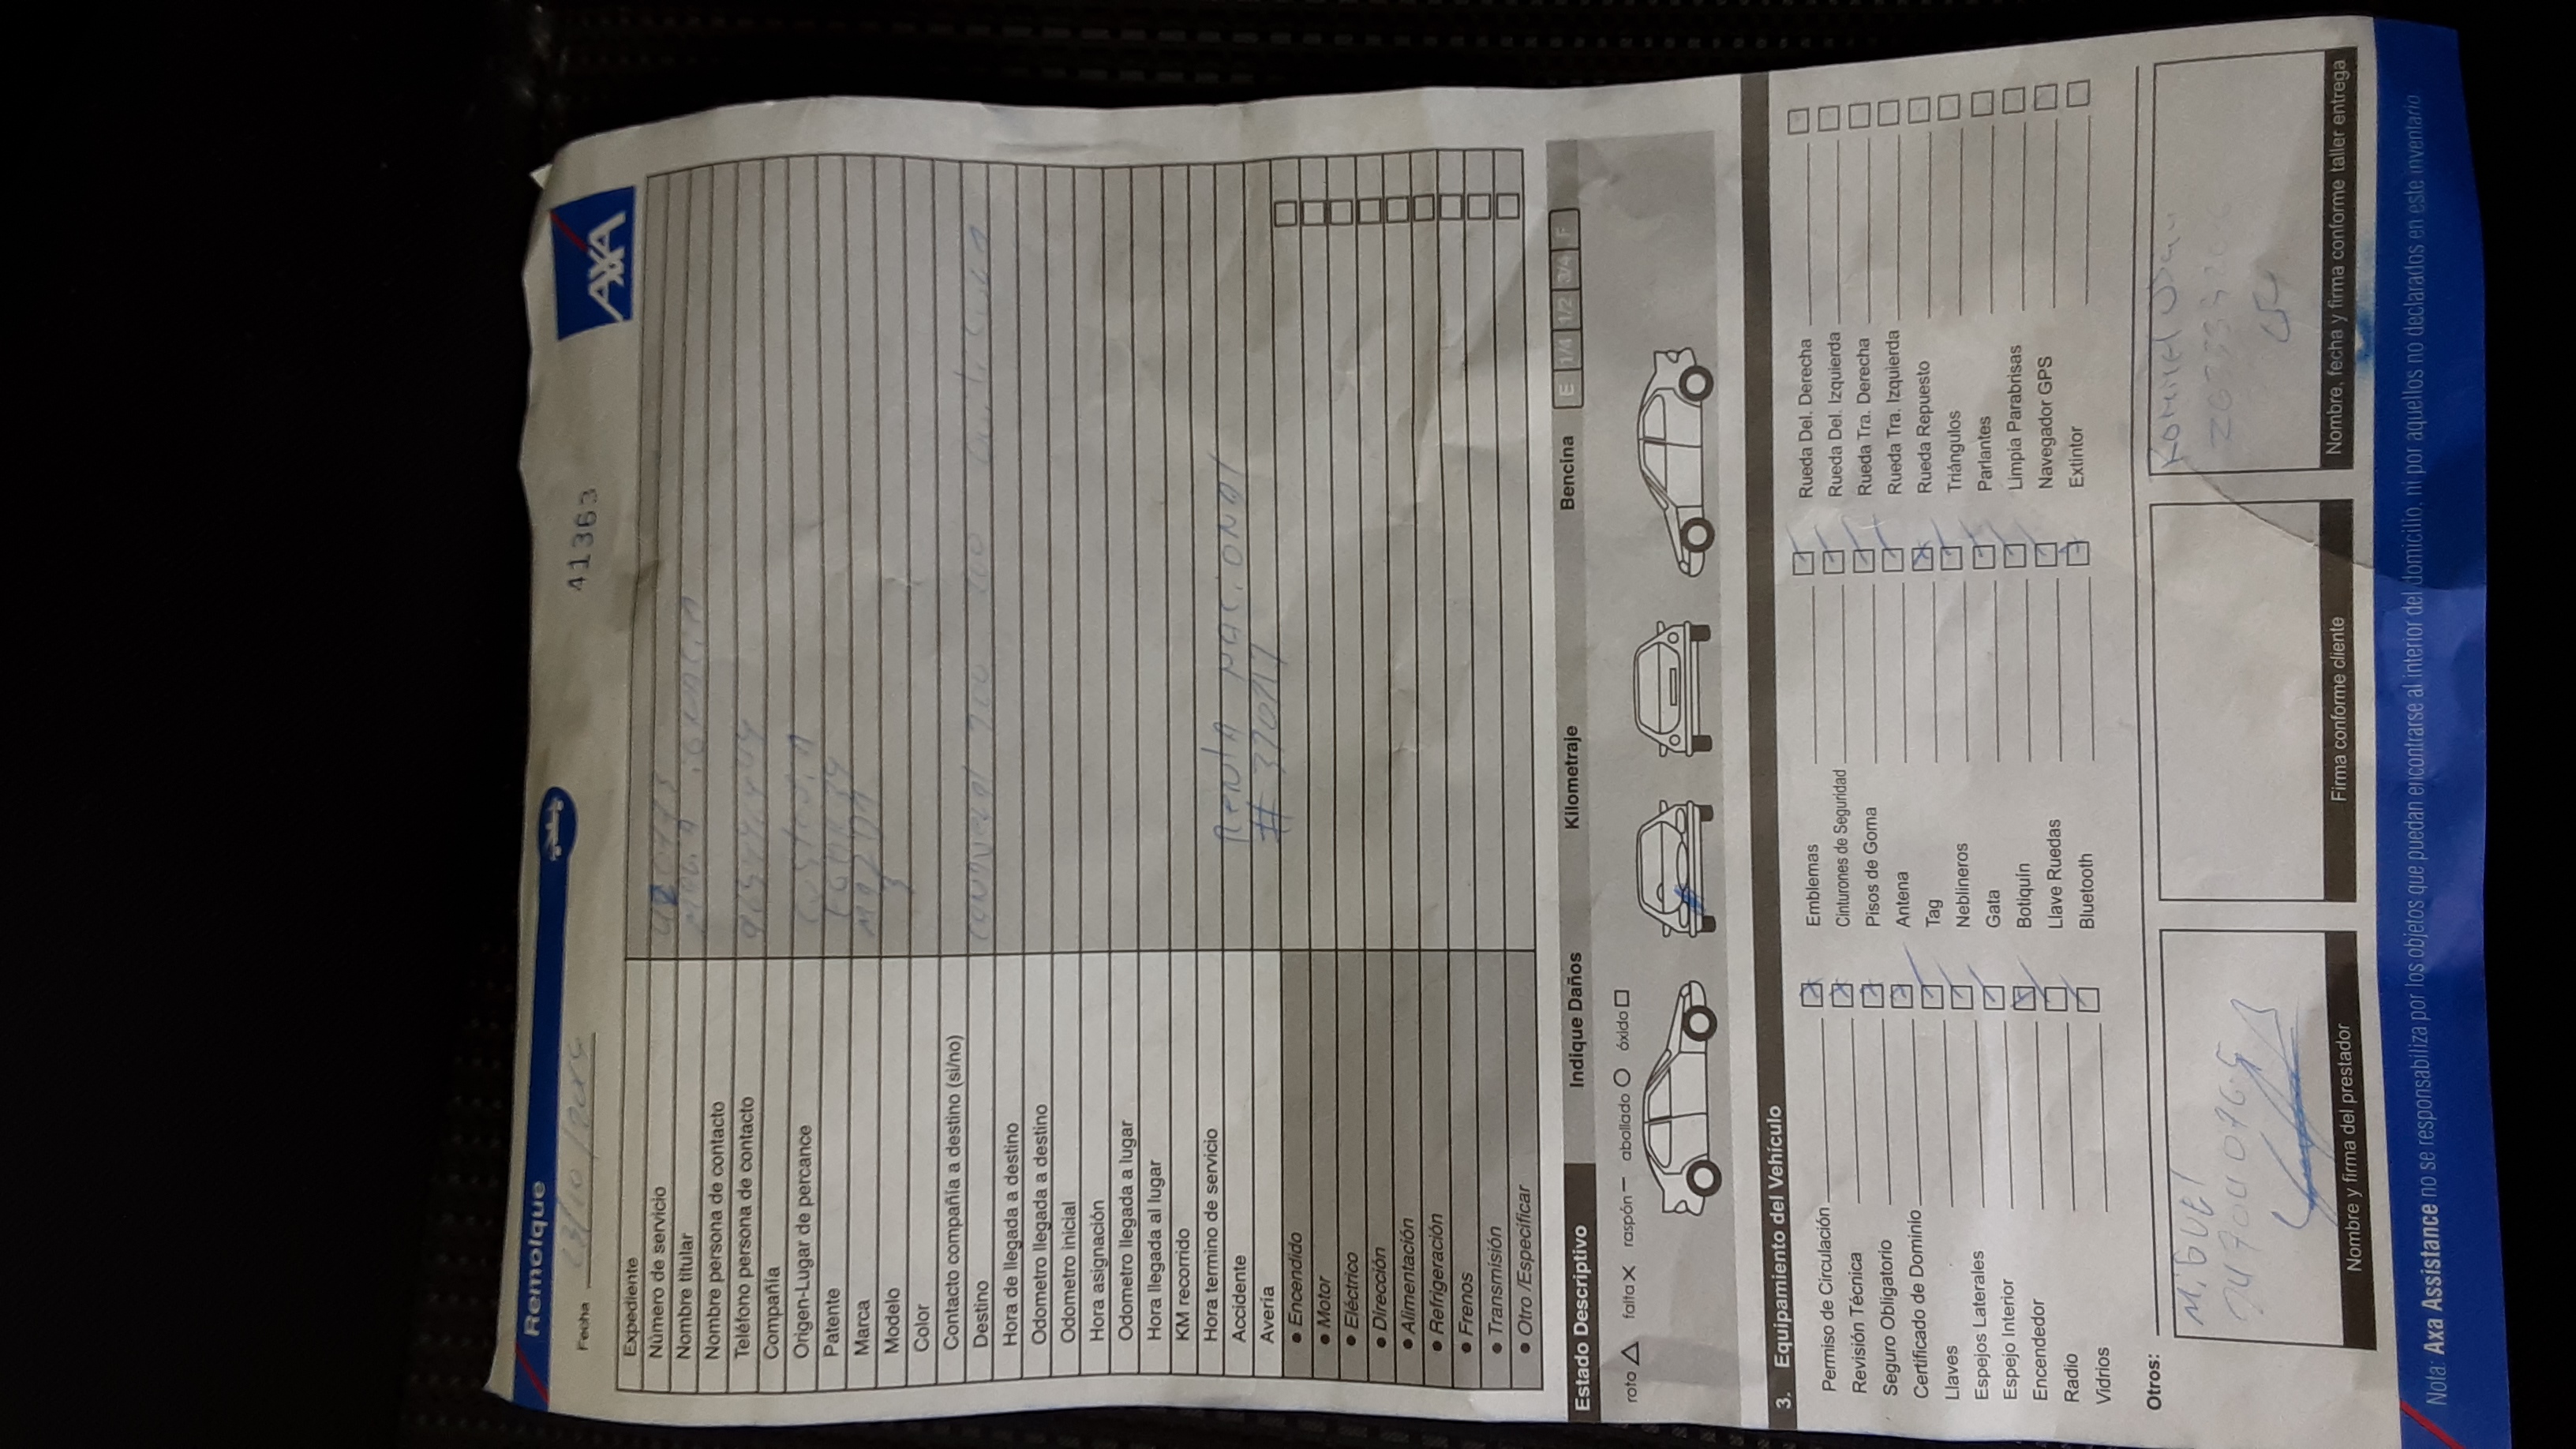 Remolque
AXA
Fecha 23/10/
41363
Expediente
Número de servicio
Nombre titular
Nombre persona de contacto
Teléfono persona de contacto
Compañía
Origen-Lugar de percance
Patente
Marca MAZDA
Modelo 3
Color
Contacto compañía a destino (si/no)
Destino
Hora de llegada a destino
Odometro llegada a destino
Odometro inicial
Hora asignación
Odometro llegada a lugar
Hora llegada al lugar
KM recorrido
Hora termino de servicio
Accidente Renta Nacional
Avería
• Encendido
• Motor
• Eléctrico
• Dirección
• Alimentación
• Refrigeración
• Frenos
• Transmisión
• Otro /Especificar
Estado Descriptivo Indique Daños Kilometraje Bencina E 1/4 1/2 3/4 F
roto falta raspón abollado óxido
3. Equipamiento del Vehículo
Permiso de Circulación Emblemas Rueda Del. Derecha
Revisión Técnica Cinturones de Seguridad Rueda Del. Izquierda
Seguro Obligatorio Pisos de Goma Rueda Tra. Derecha
Certificado de Dominio Antena Rueda Tra. Izquierda
Llaves Tag Rueda Repuesto
Espejos Laterales Neblineros Triángulos
Espejo Interior Gata Parlantes
Encendedor Botiquín Limpia Parabrisas
Radio Llave Ruedas Navegador GPS
Vidrios Bluetooth Extintor
Otros:
Miguel
Nombre y firma del prestador
Firma conforme cliente
Nombre, fecha y firma conforme taller entrega
Nota: Axa Assistance no se responsabiliza por los objetos que puedan encontrarse al interior del domicilio, ni por aquellos no declarados en este inventario